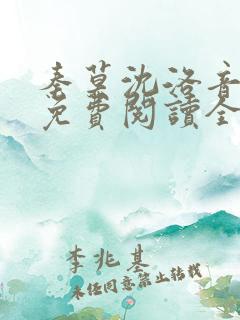 秦草沈洛音
免費閱讀全
李兆基
未经同意禁止转载